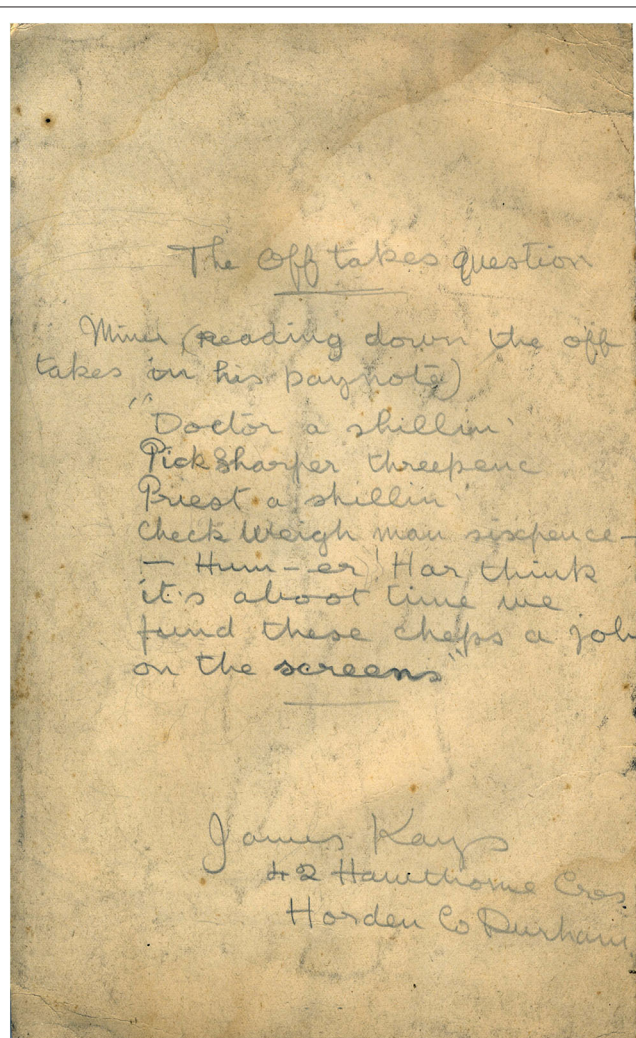 The Off takes question
Miner (reading down the off
takes in his paynote)
"Doctor a shillin'
Pick Sharper threepenc
Priest a shillin'
Check Weigh man sixpence -
- Hum - er Har think
it's aboot time we
fund these cheps a job
on the screens"
James Kays
42 Hawthorne Cres
Horden Co Durham